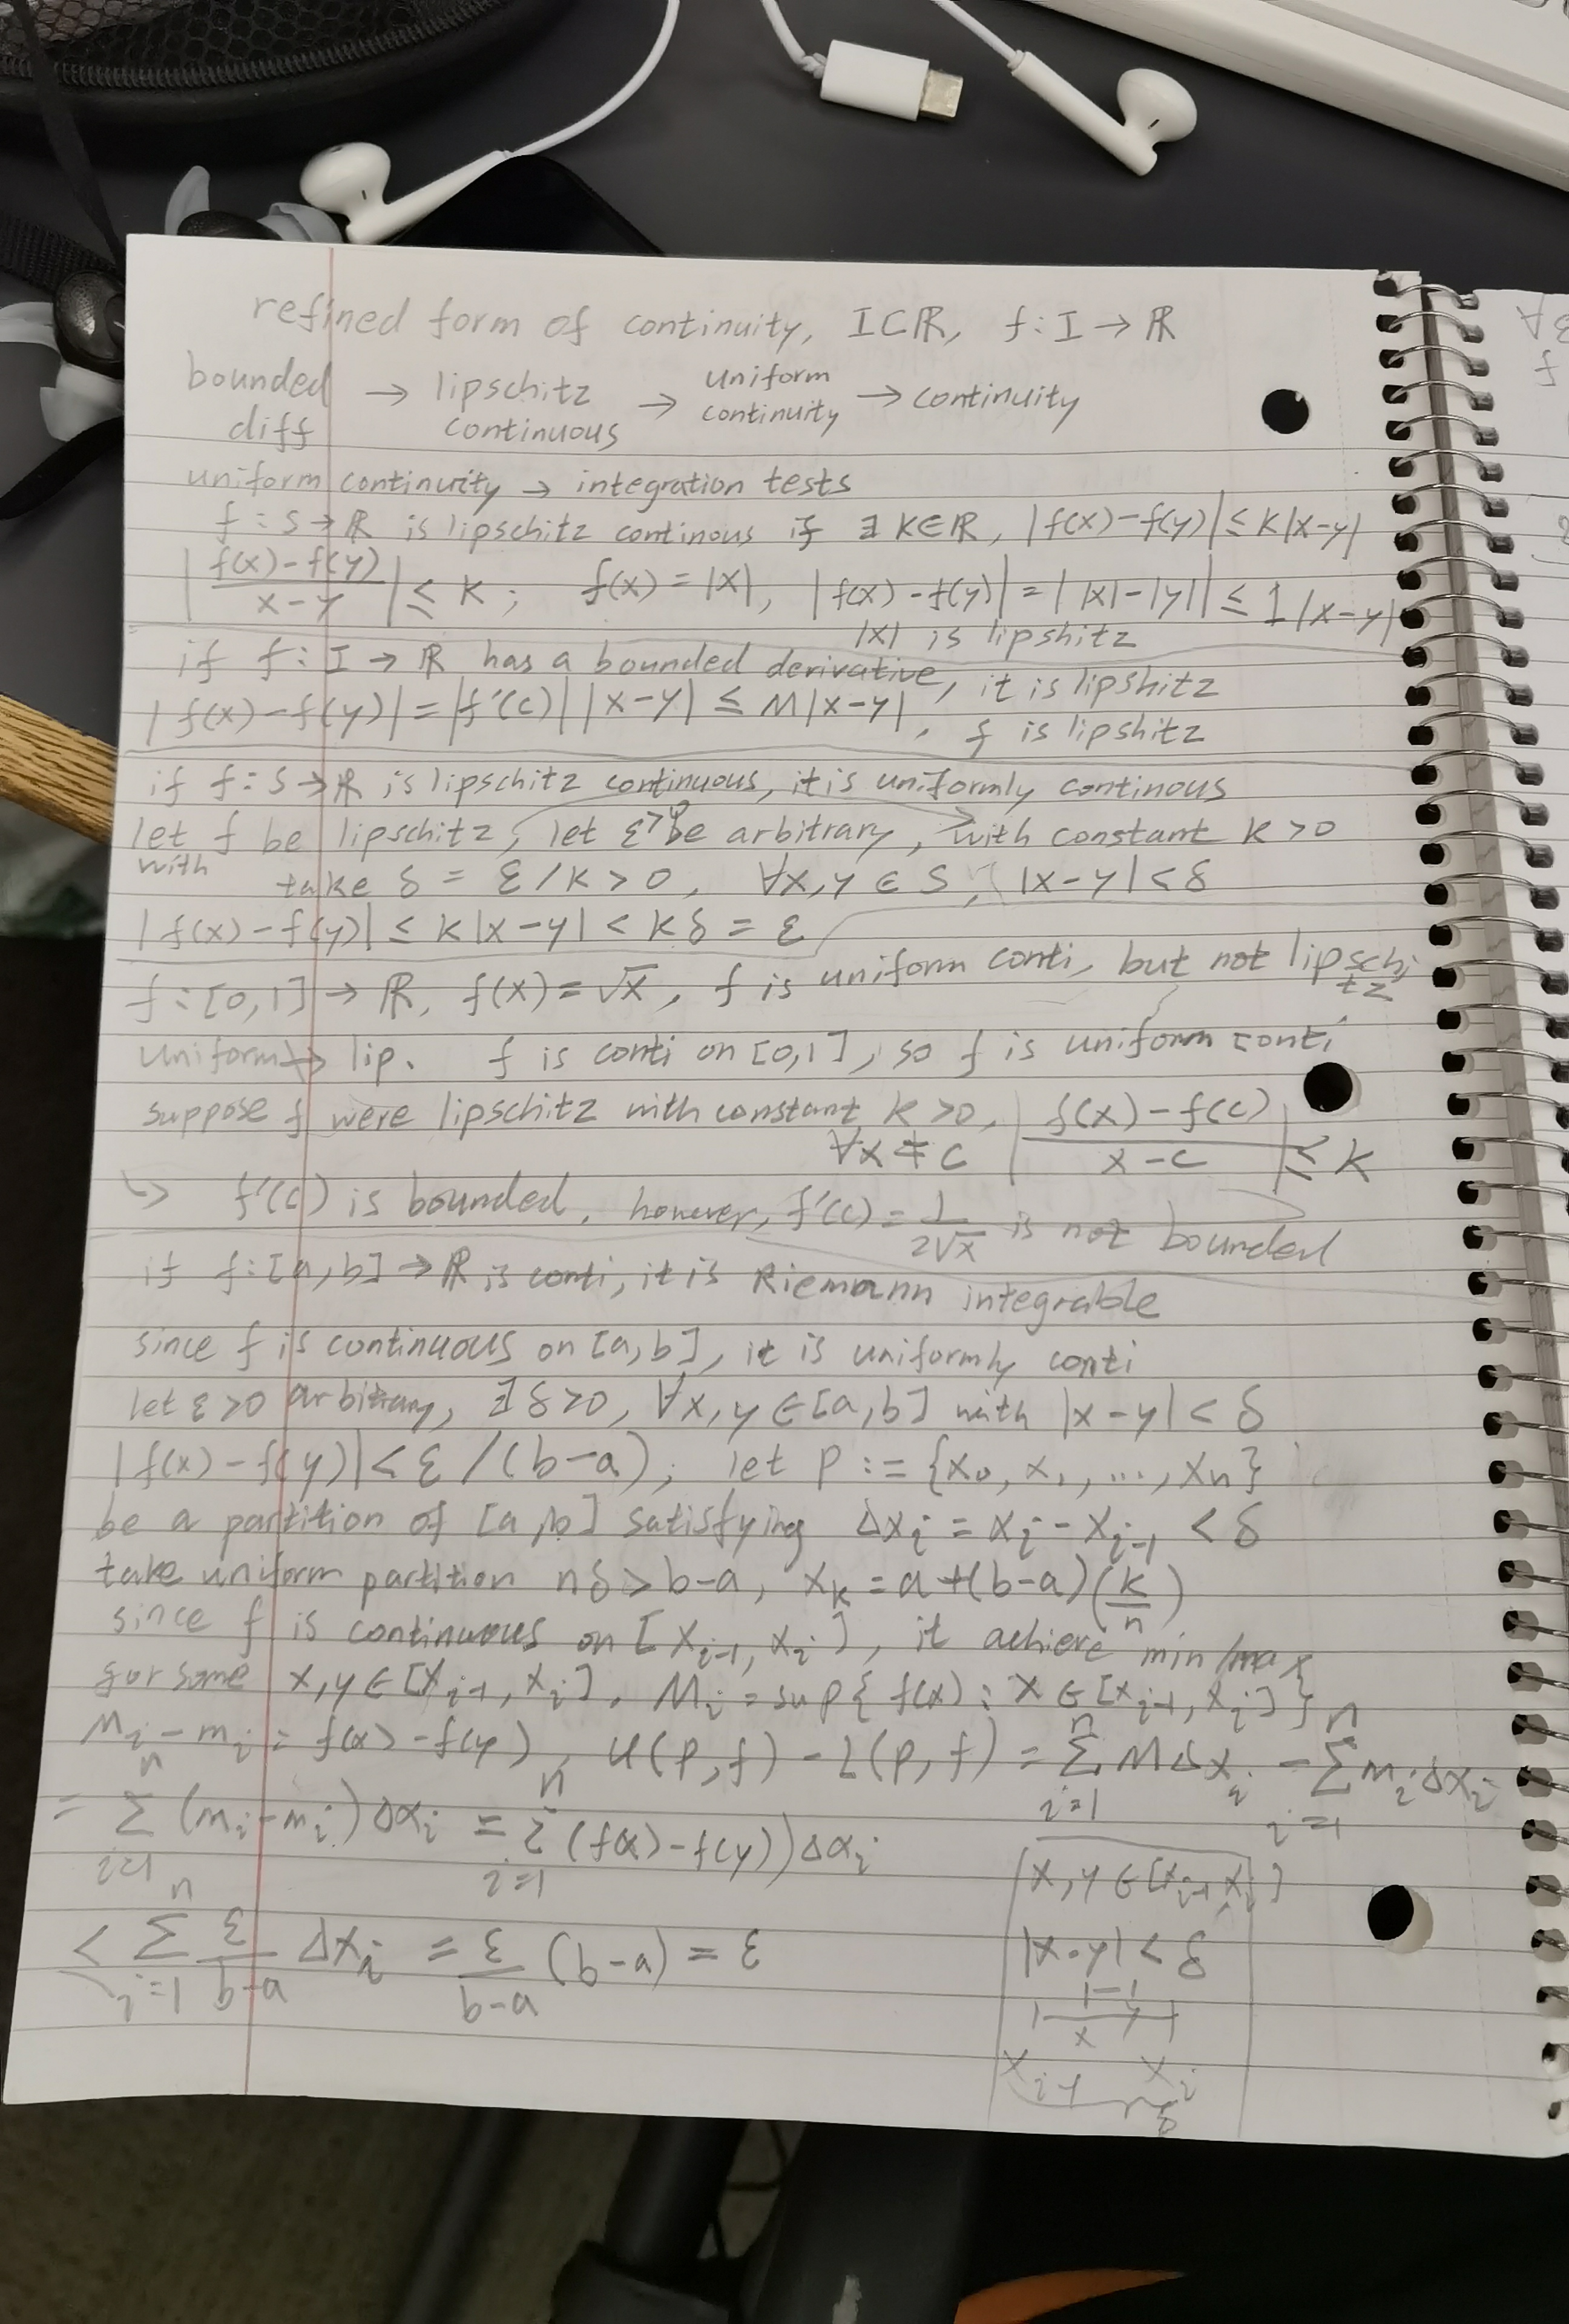 refined form of continuity, I⊂ℝ, f: I → ℝ
bounded diff → lipschitz continuous → uniform continuity → continuity
uniform continuity → integration tests
f : S → ℝ is lipschitz continous if ∃ K∈ℝ, |f(x)-f(y)| ≤ K|x-y|
|f(x)-f(y) / x-y| ≤ K; f(x) = |x|, |f(x)-f(y)| = ||x|-|y|| ≤ 1|x-y|
|x| is lipshitz
if f : I → ℝ has a bounded derivative, it is lipshitz
|f(x)-f(y)| = |f'(c)||x-y| ≤ M|x-y|, f is lipshitz
if f : S → ℝ is lipschitz continuous, it is uniformly continous
let f be lipschitz, let ε>0 be arbitrary, with constant K>0
with
take δ = ε/K > 0, ∀x,y ∈ S, |x-y| < δ
|f(x)-f(y)| ≤ K|x-y| < Kδ = ε
f : [0,1] → ℝ, f(x) = √x, f is uniform conti, but not lipschitz
uniform ↛ lip. f is conti on [0,1], so f is uniform conti
suppose f were lipschitz with constant K>0, |f(x)-f(c) / x-c| ≤ K
∀x ≠ c
↳ f'(c) is bounded, however, f'(c) = 1/2√x is not bounded
if f:[a,b] → ℝ is conti, it is Riemann integrable
since f is continuous on [a,b], it is uniformly conti
let ε>0 arbitrary, ∃ δ>0, ∀x,y ∈[a,b] with |x-y| < δ
|f(x)-f(y)| < ε/(b-a), let P := {x₀, x₁, ..., xₙ}
be a partition of [a,b] satisfying Δxᵢ = xᵢ - xᵢ₋₁ < δ
take uniform partition nδ > b-a, xₖ = a+(b-a)(k/n)
since f is continuous on [xᵢ₋₁, xᵢ], it achieve min/max
for some x,y ∈ [xᵢ₋₁, xᵢ], Mᵢ = sup{f(x) : x ∈ [xᵢ₋₁, xᵢ]}
Mᵢ - mᵢ = f(x) - f(y), U(P,f) - L(P,f) = ∑ᵢ₌₁ⁿ MΔxᵢ - ∑ᵢ₌₁ⁿ mᵢΔxᵢ
= ∑ᵢ₌₁ⁿ (mᵢ-mᵢ)Δxᵢ = ∑ᵢ₌₁ⁿ (f(x)-f(y))Δxᵢ
x,y ∈ [xᵢ₋₁, xᵢ]
< ∑ᵢ₌₁ⁿ ε/b-a Δxᵢ = ε/b-a (b-a) = ε
|x-y| < δ
x y
xᵢ₋₁ xᵢ
δ